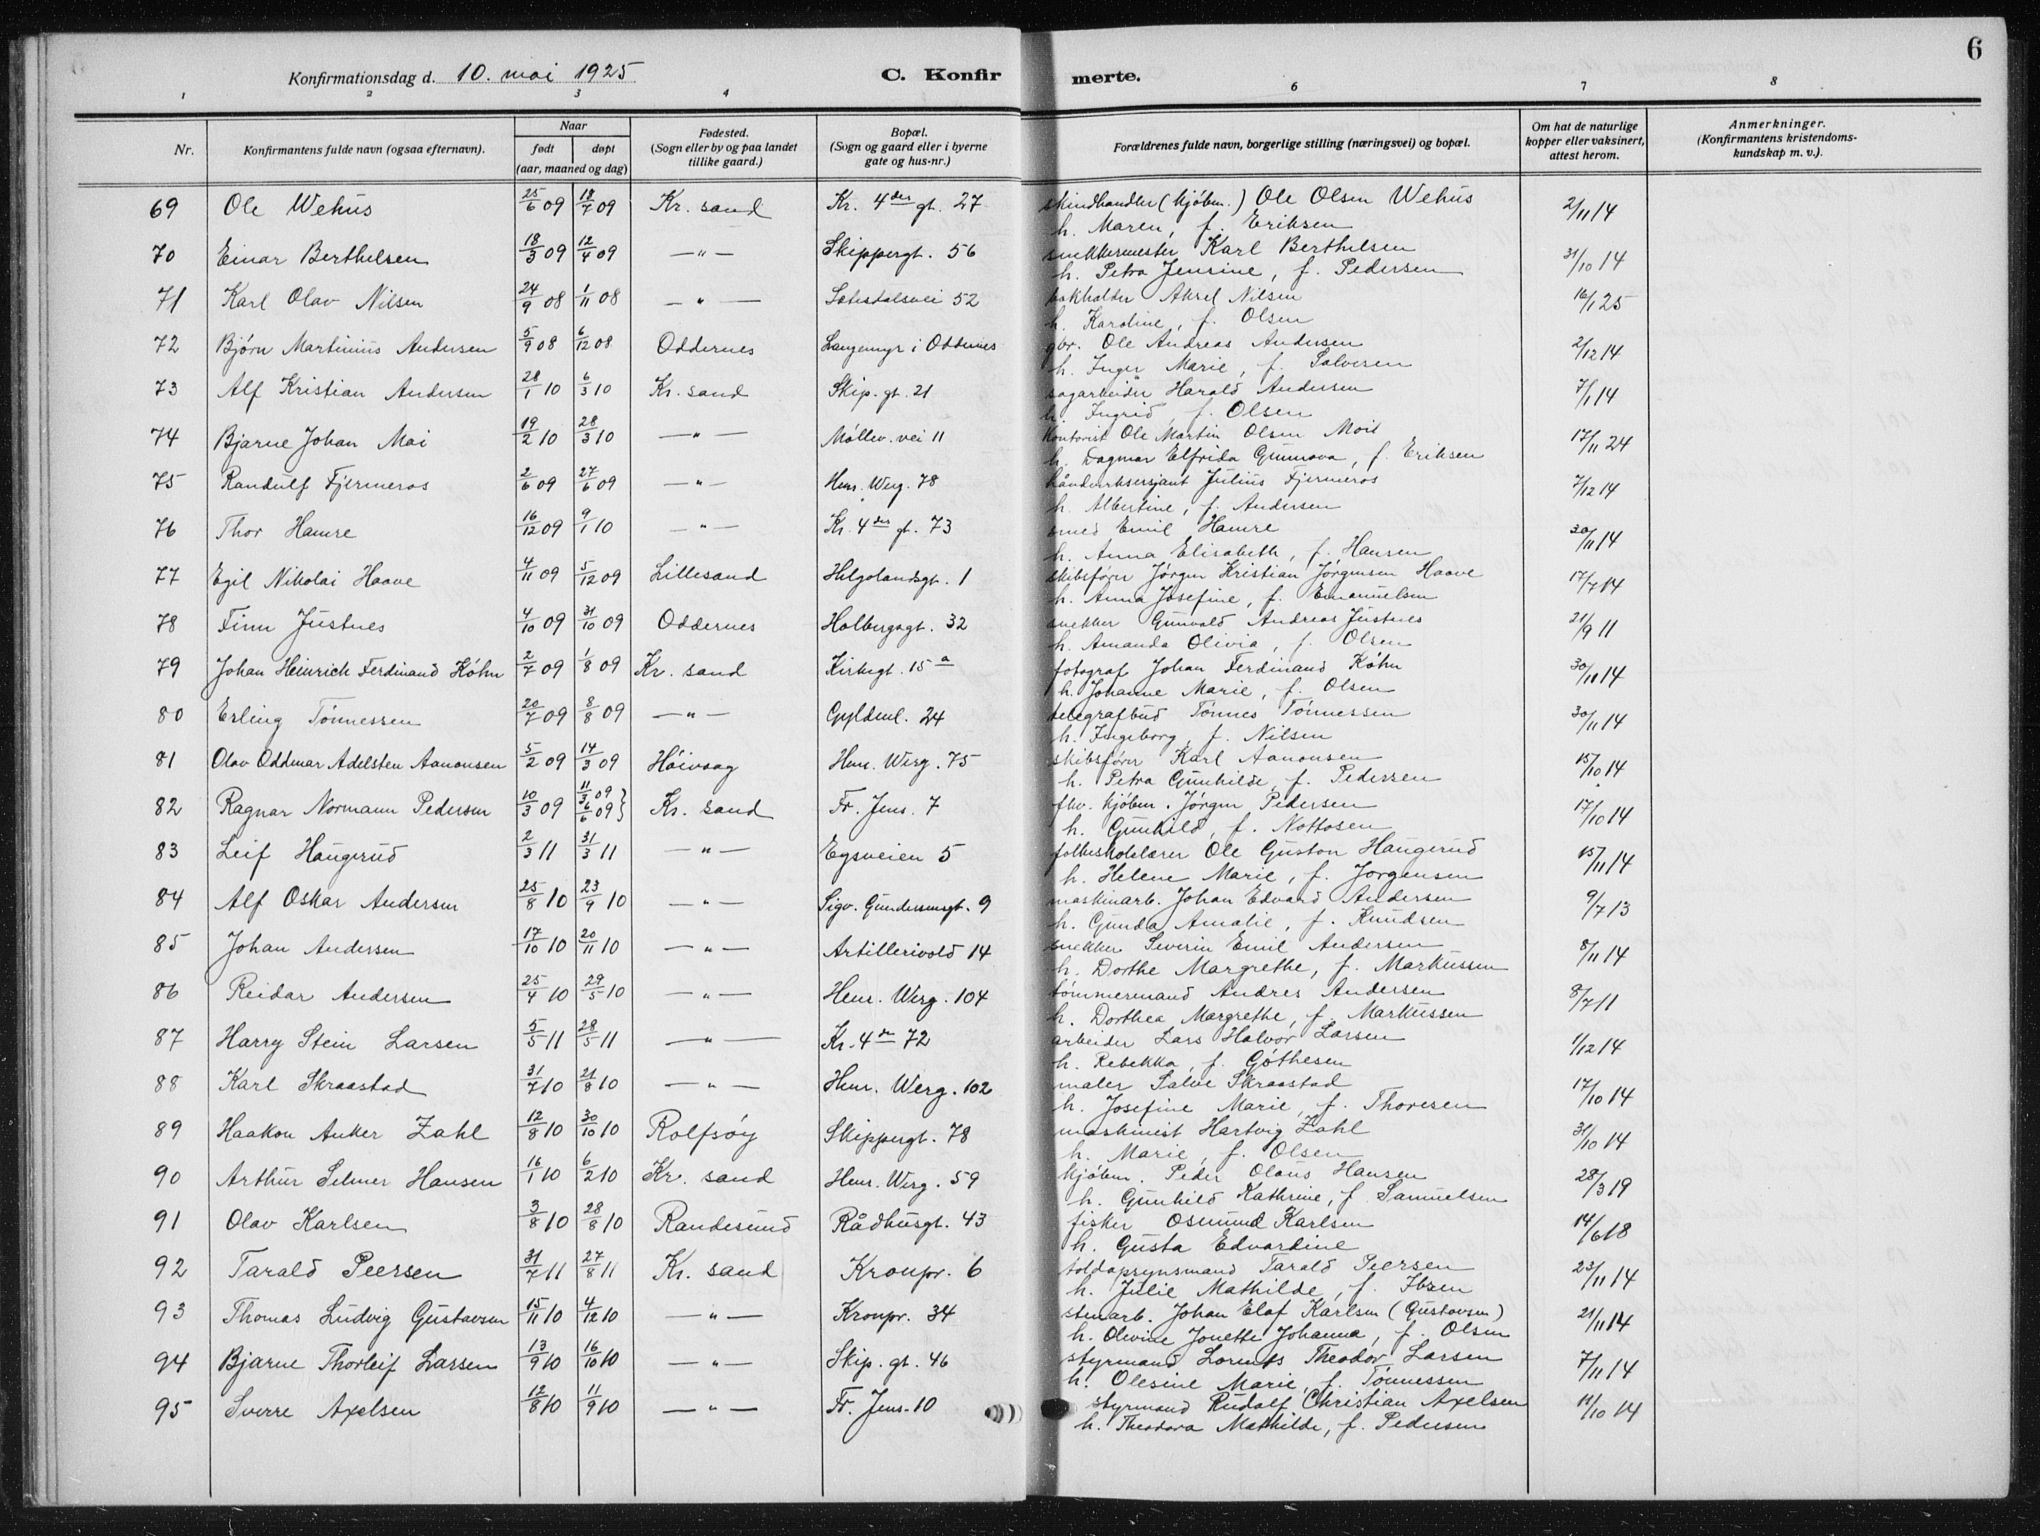 6
Konfirmationsdag d. 10. mai 1925
C. Konfirmerte.
1 2 3 4 6 7 8
Nr.
Konfirmantens fulde navn (ogsaa efternavn).
Naar
født døpt
(aar, maaned og dag)
Fødested.
(Sogn eller by og paa landet
tillike gaard.)
Bopæl.
(Sogn og gaard eller i byerne
gate og hus-nr.)
Forældrenes fulde navn, borgerlige stilling (næringsvei) og bopæl.
Om hat de naturlige
kopper eller vaksinert,
attest herom.
Anmerkninger.
(Konfirmantens kristendoms-
kundskap m. v.).
69 Ole Wehus 25/6 09 18/7 09 Kr. sand Kr. 4des gt. 27 skindhandler (kjøbm.) Ole Olsen Wehus 2/11 14
h. Maren, f. Eriksen
70 Einar Berthelsen 18/3 09 12/4 09 —"— Skippergt. 56 snekkermester Karl Berthelsen 31/10 14
h. Petra Jensine, f. Pedersen
71 Karl Olav Nilsen 24/9 08 1/11 08 —"— Sætesdalsvei 52 bokholder Aksel Nilsen 16/1 25
h. Karoline, f. Olsen
72 Bjørn Martinius Andersen 5/9 08 6/12 08 Oddernes Langemyr i Oddernes gbr. Ole Andreas Andersen 2/12 14
h. Inger Marie, f. Salvesen
73 Alf Kristian Andersen 28/1 10 6/3 10 Kr. sand Skip. gt. 21 sagarbeider Harald Andersen 7/1 14
h. Ingrid f. Olsen
74 Bjarne Johan Moi 19/2 10 28/3 10 —"— Møllev. vei 11 kontorist Ole Martin Olsen Moi 17/11 24
h. Dagmar Elfrida Gunnova, f. Eriksen
75 Randulf Fjermeros 2/6 09 27/6 09 —"— Henr. Werg. 78 håndverksersjant Julius Fjermeros 7/12 14
h. Albertine, f. Andersen
76 Thor Hamre 16/12 09 9/1 10 —"— Kr. 4des gt. 73 smed Emil Hamre 30/11 14
h. Anna Elisabeth, f. Hansen
77 Egil Nikolai Haave 4/11 09 5/12 09 Lillesand Helgolandsgt. 1 skibsfører Jørgen Kristian Jørgensen Haave 17/7 14
h. Anna Josefine, f. Emanuelsen
78 Finn Justnes 4/10 09 31/10 09 Oddernes Holbergsgt. 32 snekker Gunvald Andreas Justnes 21/9 11
h. Amanda Olivia, f. Olsen
79 Johan Heinrich Ferdinand Køhn 2/7 09 1/8 09 Kr. sand Kirkegt. 15 a fotograf Johan Ferdinand Køhn 30/11 14
h. Johanne Marie, f. Olsen
80 Erling Tønnessen 20/7 09 8/8 09 —"— Gyldenl. 24 telegrafbud Tønnes Tønnessen 30/11 14
h. Ingeborg, f. Nilsen
81 Olav Oddmar Adelsten Aanonsen 5/2 09 14/3 09 Høivaag Henr. Werg. 75 skibsfører Karl Aanonsen 15/10 14
h. Petra Gunhilde, f. Pedersen
82 Ragnar Normann Pedersen 10/3 09 11/3 09 6/6 09} Kr. sand Fr. Jens. 7 fhv. kjøbm. Jørgen Pedersen 17/10 14
h. Gunhild, f. Nottosen
83 Leif Haugerud 2/3 11 31/3 11 —"— Egsveien 5 folkeskolelærer Ole Gustav Haugerud 15/11 14
h. Helene Marie, f. Jørgensen
84 Alf Oskar Andersen 25/8 10 23/9 10 —"— Sigv. Gundersensgt. 9 maskinarb. Johan Edvard Andersen 9/7 13
h. Gunda Amalie, f. Knudsen
85 Johan Andersen 17/10 10 20/11 10 —"— Artillerivold 14 snekker Severin Emil Andersen 8/11 14
h. Dorthe Margrethe, f. Markussen
86 Reidar Andersen 25/4 10 29/5 10 —"— Henr. Werg. 104 tømmermand Andres Andersen 8/7 11
h. Dorthea Margrethe, f. Markussen
87 Harry Stein Larsen 5/5 11 28/5 11 —"— Kr. 4de 72 arbeider Lars Halvor Larsen 1/12 14
h. Rebekka, f. Gøthesen
88 Karl Skraastad 31/7 10 21/8 10 —"— Henr. Werg. 102 maler Salve Skraastad 17/10 14
h. Josefine Marie, f. Thoresen
89 Haakon Anker Zahl 12/8 10 30/10 10 Rolfsøy Skippergt. 78 maskinist Hartvig Zahl 31/10 14
h. Marie, f. Olsen
90 Arthur Selmer Hansen 16/1 10 6/2 10 Kr. sand Henr. Werg. 59 kjøbm. Peder Olaus Hansen 28/3 19
h. Gunhild Kathrine, f. Samuelsen
91 Olav Karlsen 3/8 10 28/8 10 Randesund Rådhusgt. 43 fisker Osmund Karlsen 14/6 18
h. Gusta Edvardine
92 Tarald Peersen 31/7 11 27/8 11 Kr. sand Kronpr. 6 toldopsynsmand Tarald Peersen 23/11 14
h. Julie Mathilde, f. Ibsen
93 Thomas Ludvig Gustavsen 15/11 10 4/12 10 —"— Kronpr. 34 stenarb. Johan Elof Karlsen (Gustavsen) 21/11 14
h. Olevine Jonette Johanna, f. Olsen
94 Bjarne Thorleif Larsen 13/9 10 16/10 10 —"— Skip. gt. 46 styrmand Lorents Theodor Larsen 7/11 14
h. Olesine Marie, f. Tønnessen
95 Sverre Axelsen 12/8 10 11/9 10 —"— Fr. Jens. 10 styrmand Rudolf Christian Axelsen 11/10 14
h. Theodora Mathilde, f. Pedersen